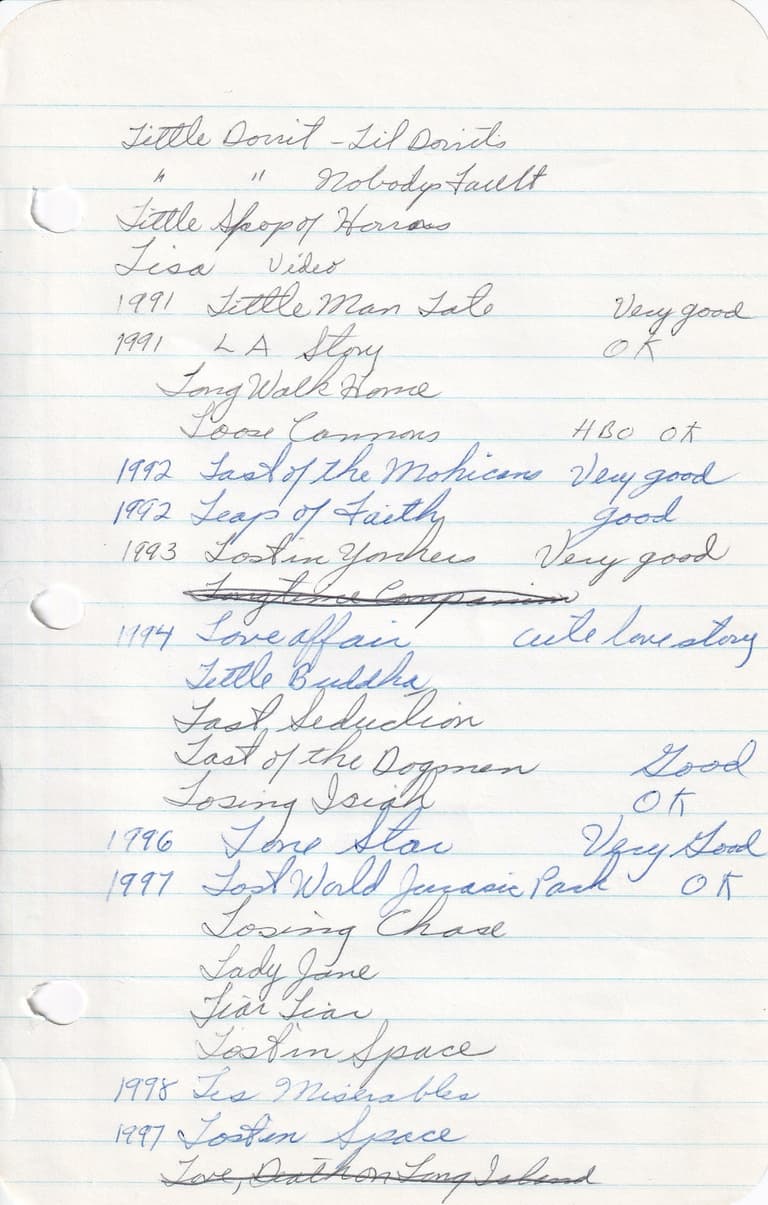 Little Dorrit - Lil Dorrits
" " Nobodys Fault
Little Shop of Horrors
Lisa Video
1991 Little Man Tate Very good
1991 LA Story OK
Long Walk Home
Loose Cannons HBO OK
1992 Last of the Mohicans Very good
1992 Leap of Faith good
1993 Lost in Yonkers Very good
Longtime Companion
1994 Love affair cute love story
Little Buddha
Last Seduction
Last of the Dogmen Good
Losing Isiah OK
1996 Lone Star Very Good
1997 Lost World Jurasic Park OK
Losing Chase
Lady Jane
Liar Liar
Lost in Space
1998 Les Miserables
1997 Lost in Space
Love, Death on Long Island